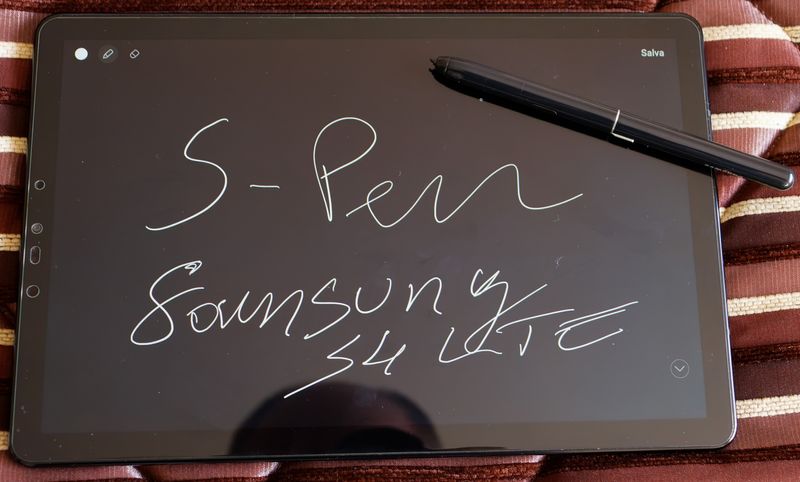 Salva
S-Pen
Samsung
S4 LTE